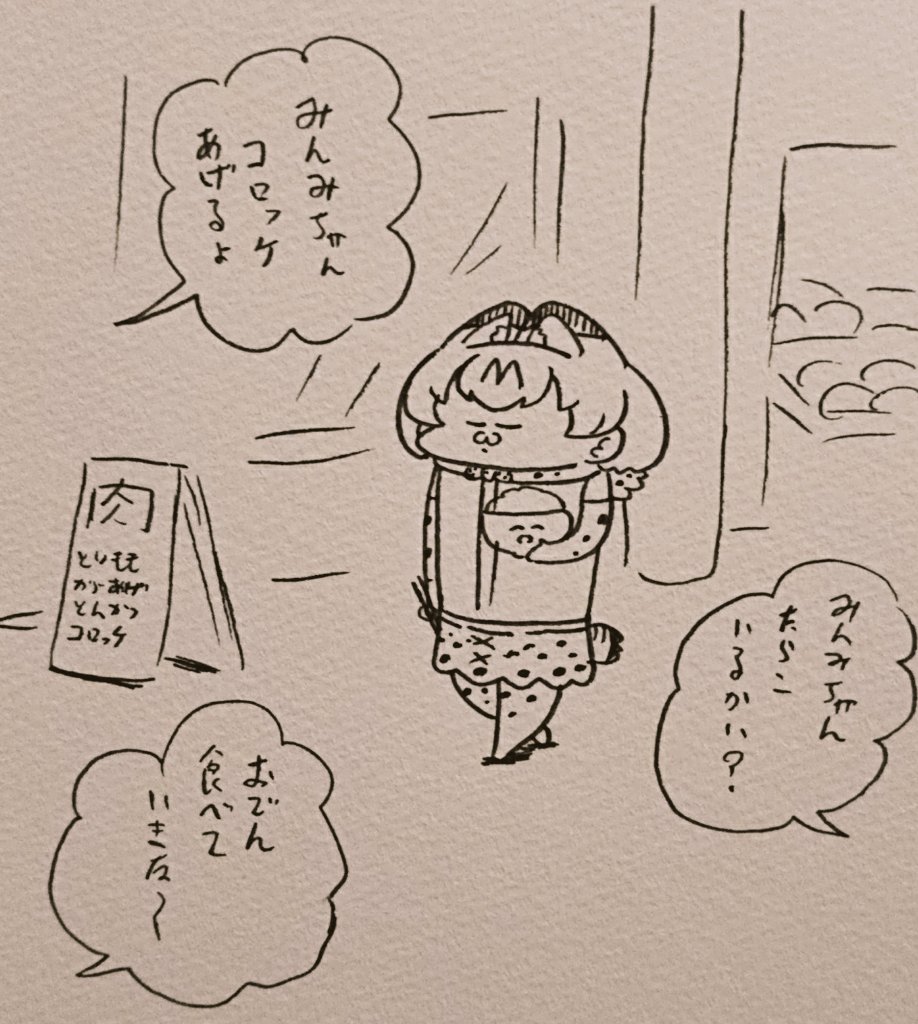 みんみちゃん
コロッケ
あげるよ
肉
とりもも
からあげ
とんかつ
コロッケ
みんみちゃん
たらこ
いるかい?
おでん
食べて
いきな〜